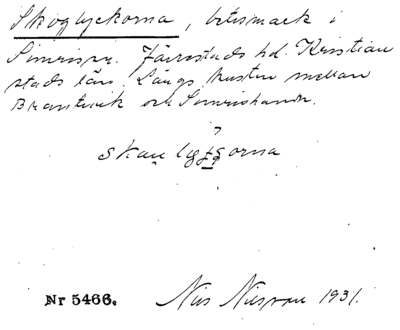 Skoglyckorna, betesmark i
Simrispr. Järrestads hd. Kristian
stads län. Längs kusten mellan
Brantevik och Simrishamn.
skau
Nr 5466. Nils Nilsson 1931.